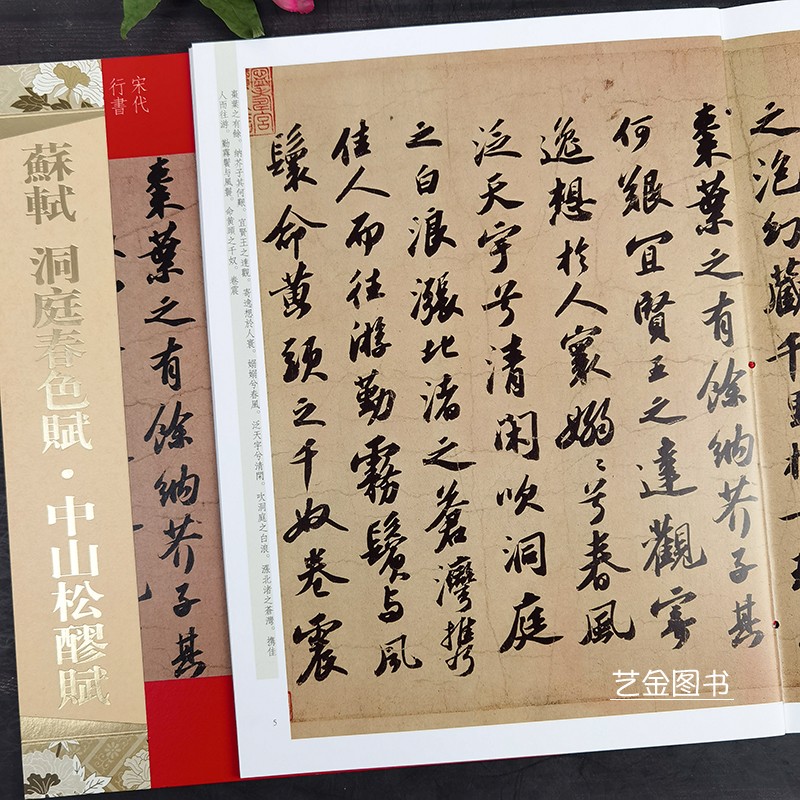 宋代
行書
蘇軾 洞庭春色賦·中山松醪賦
棗葉之有餘納芥子其
之泡幻藏千里
棗葉之有餘納芥子其
何艱宜賢王之達觀寄
逸想於人寰嫋〻兮春風
泛天宇兮清閑吹洞庭
之白浪漲北渚之蒼灣携
佳人而往游勤霧鬢与風
鬟命黄頭之千奴卷震
棗葉之有餘。納芥子其何艱。宜賢王之達觀。寄逸想於人寰。嫋嫋兮春風。泛天宇兮清閑。吹洞庭之白浪。漲北渚之蒼灣。携佳
人而往游。勤霧鬢与風鬟。命黄頭之千奴。卷震
5
艺金图书